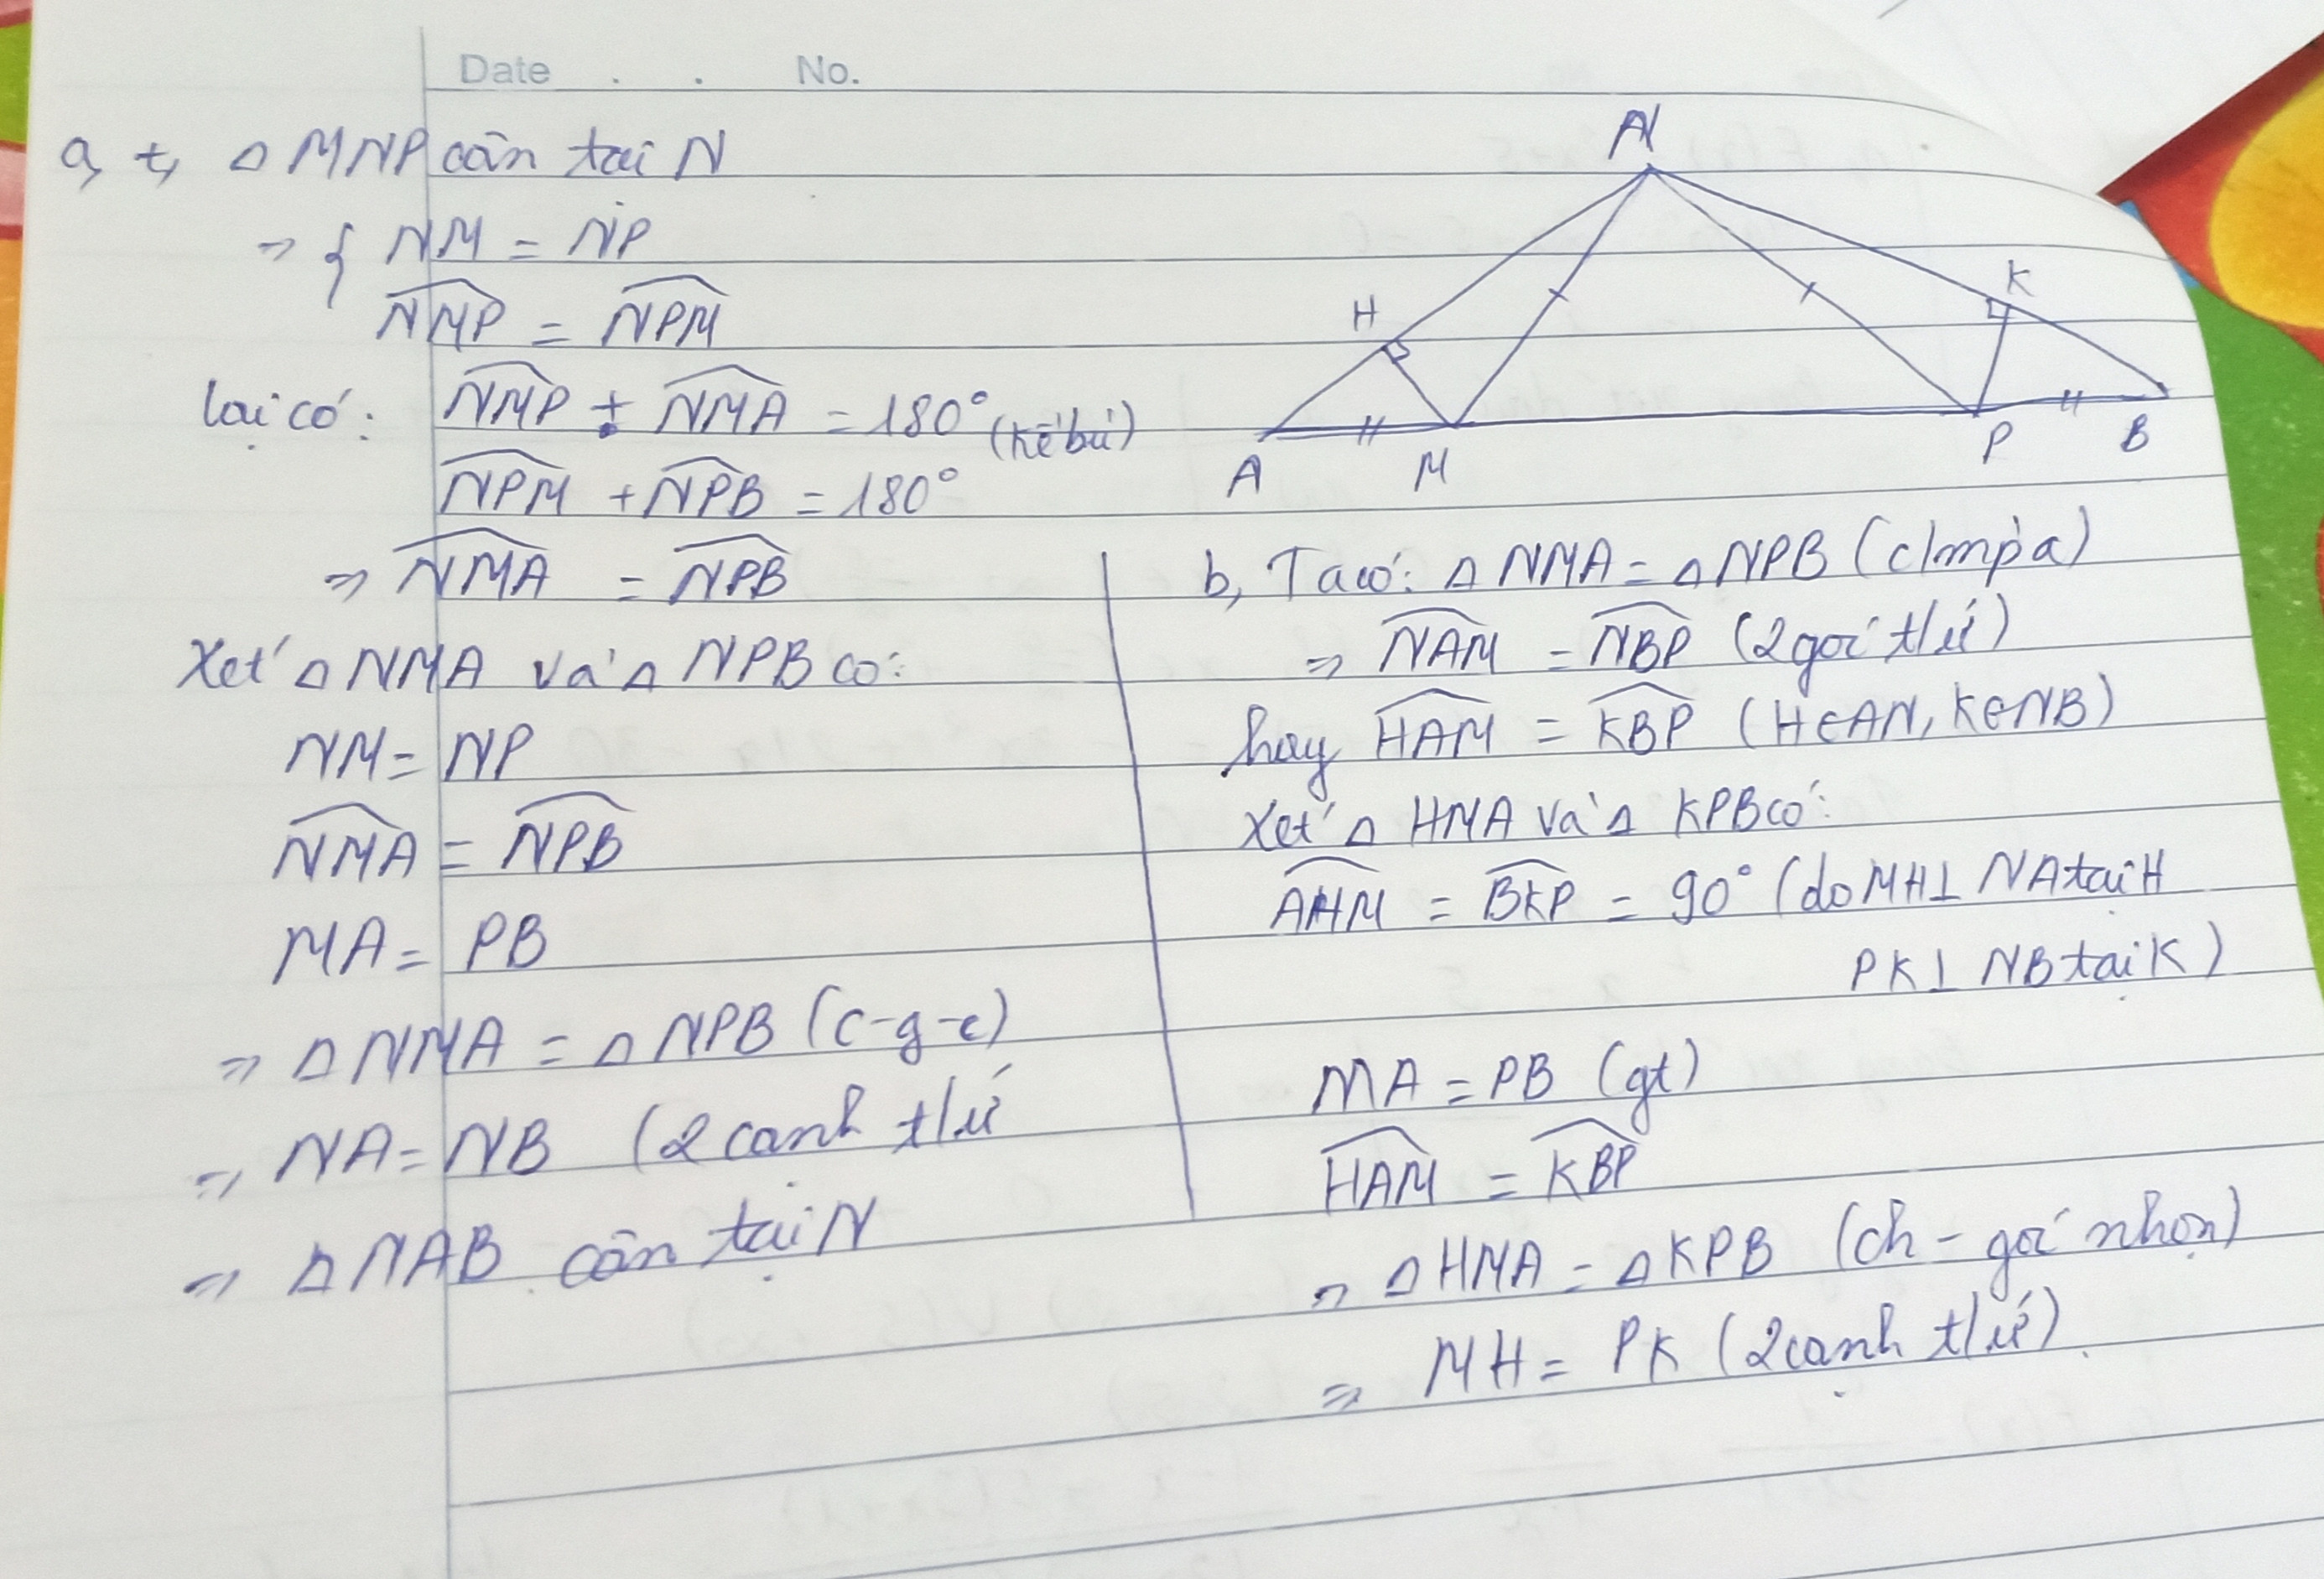 Date . . No.
a, +, △ MNP cân tại N
=> { NM = NP
NMP = NPM
lại có: NMP + NMA = 180° (kề bù)
NPM + NPB = 180°
=> NMA = NPB
Xét △ NMA và △ NPB có:
NM = NP
NMA = NPB
MA = PB
=> △ NMA = △ NPB (c-g-c)
=> NA = NB (2 cạnh t/ứ
=> △ NAB cân tại N
N
H
K
A
M
P
B
b, Ta có: △ NMA = △ NPB (c/m p̀ a)
=> NAM = NBP (2 góc t/ứ)
hay HAM = KBP (H∈AN, K∈NB)
Xét △ HMA và △ KPB có:
AHM = BKP = 90° (do MH⊥ NA tại H
PK⊥ NB tại K)
MA = PB (gt)
HAM = KBP
=> △ HMA = △ KPB (ch - góc nhọn)
=> MH = PK (2 cạnh t/ứ).